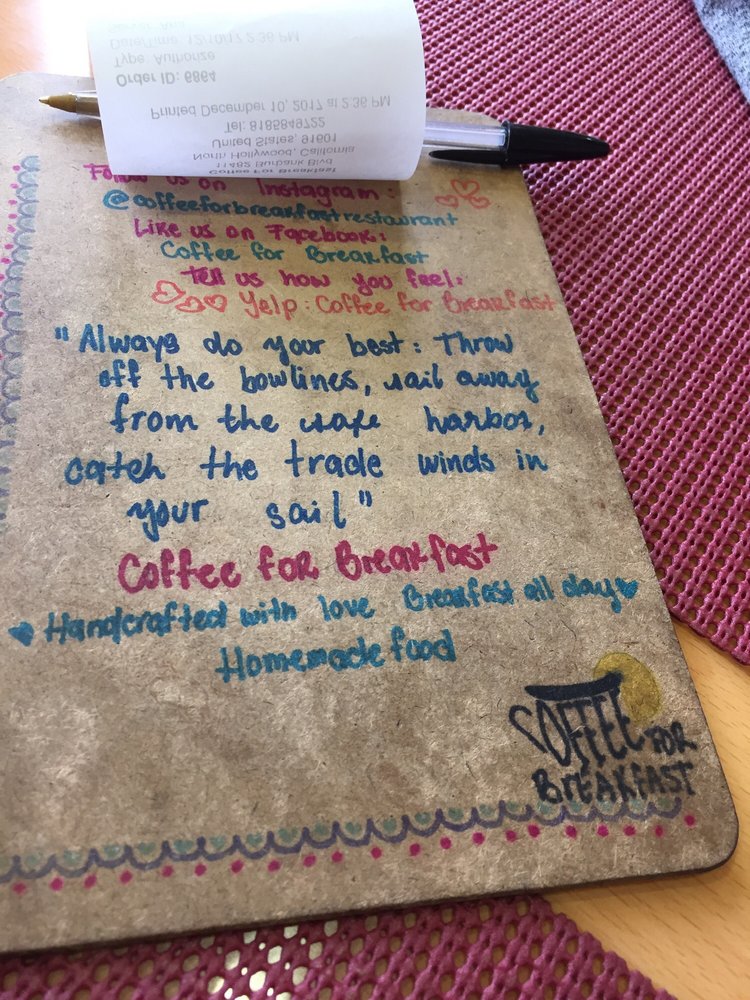 Server: Ana
Date/Time: 12/10/17 2:36 PM
Type: Authorize
Order ID: 6864
Printed December 10, 2017 at 2:36 PM
Tel: 8185849722
United States, 91601
North Hollywood, California
11482 Burbank Blvd
Coffee For Breakfast
Follow us on Instagram:
@coffeeforbreakfastrestaurant
Like us on Facebook:
Coffee for Breakfast
Tell us how you feel:
Yelp: Coffee for Breakfast
"Always do your best: Throw
off the bowlines, sail away
from the safe harbor,
catch the trade winds in
your sail"
Coffee for Breakfast
Handcrafted with love Breakfast all day
Homemade food
COFFEE FOR
BREAKFAST